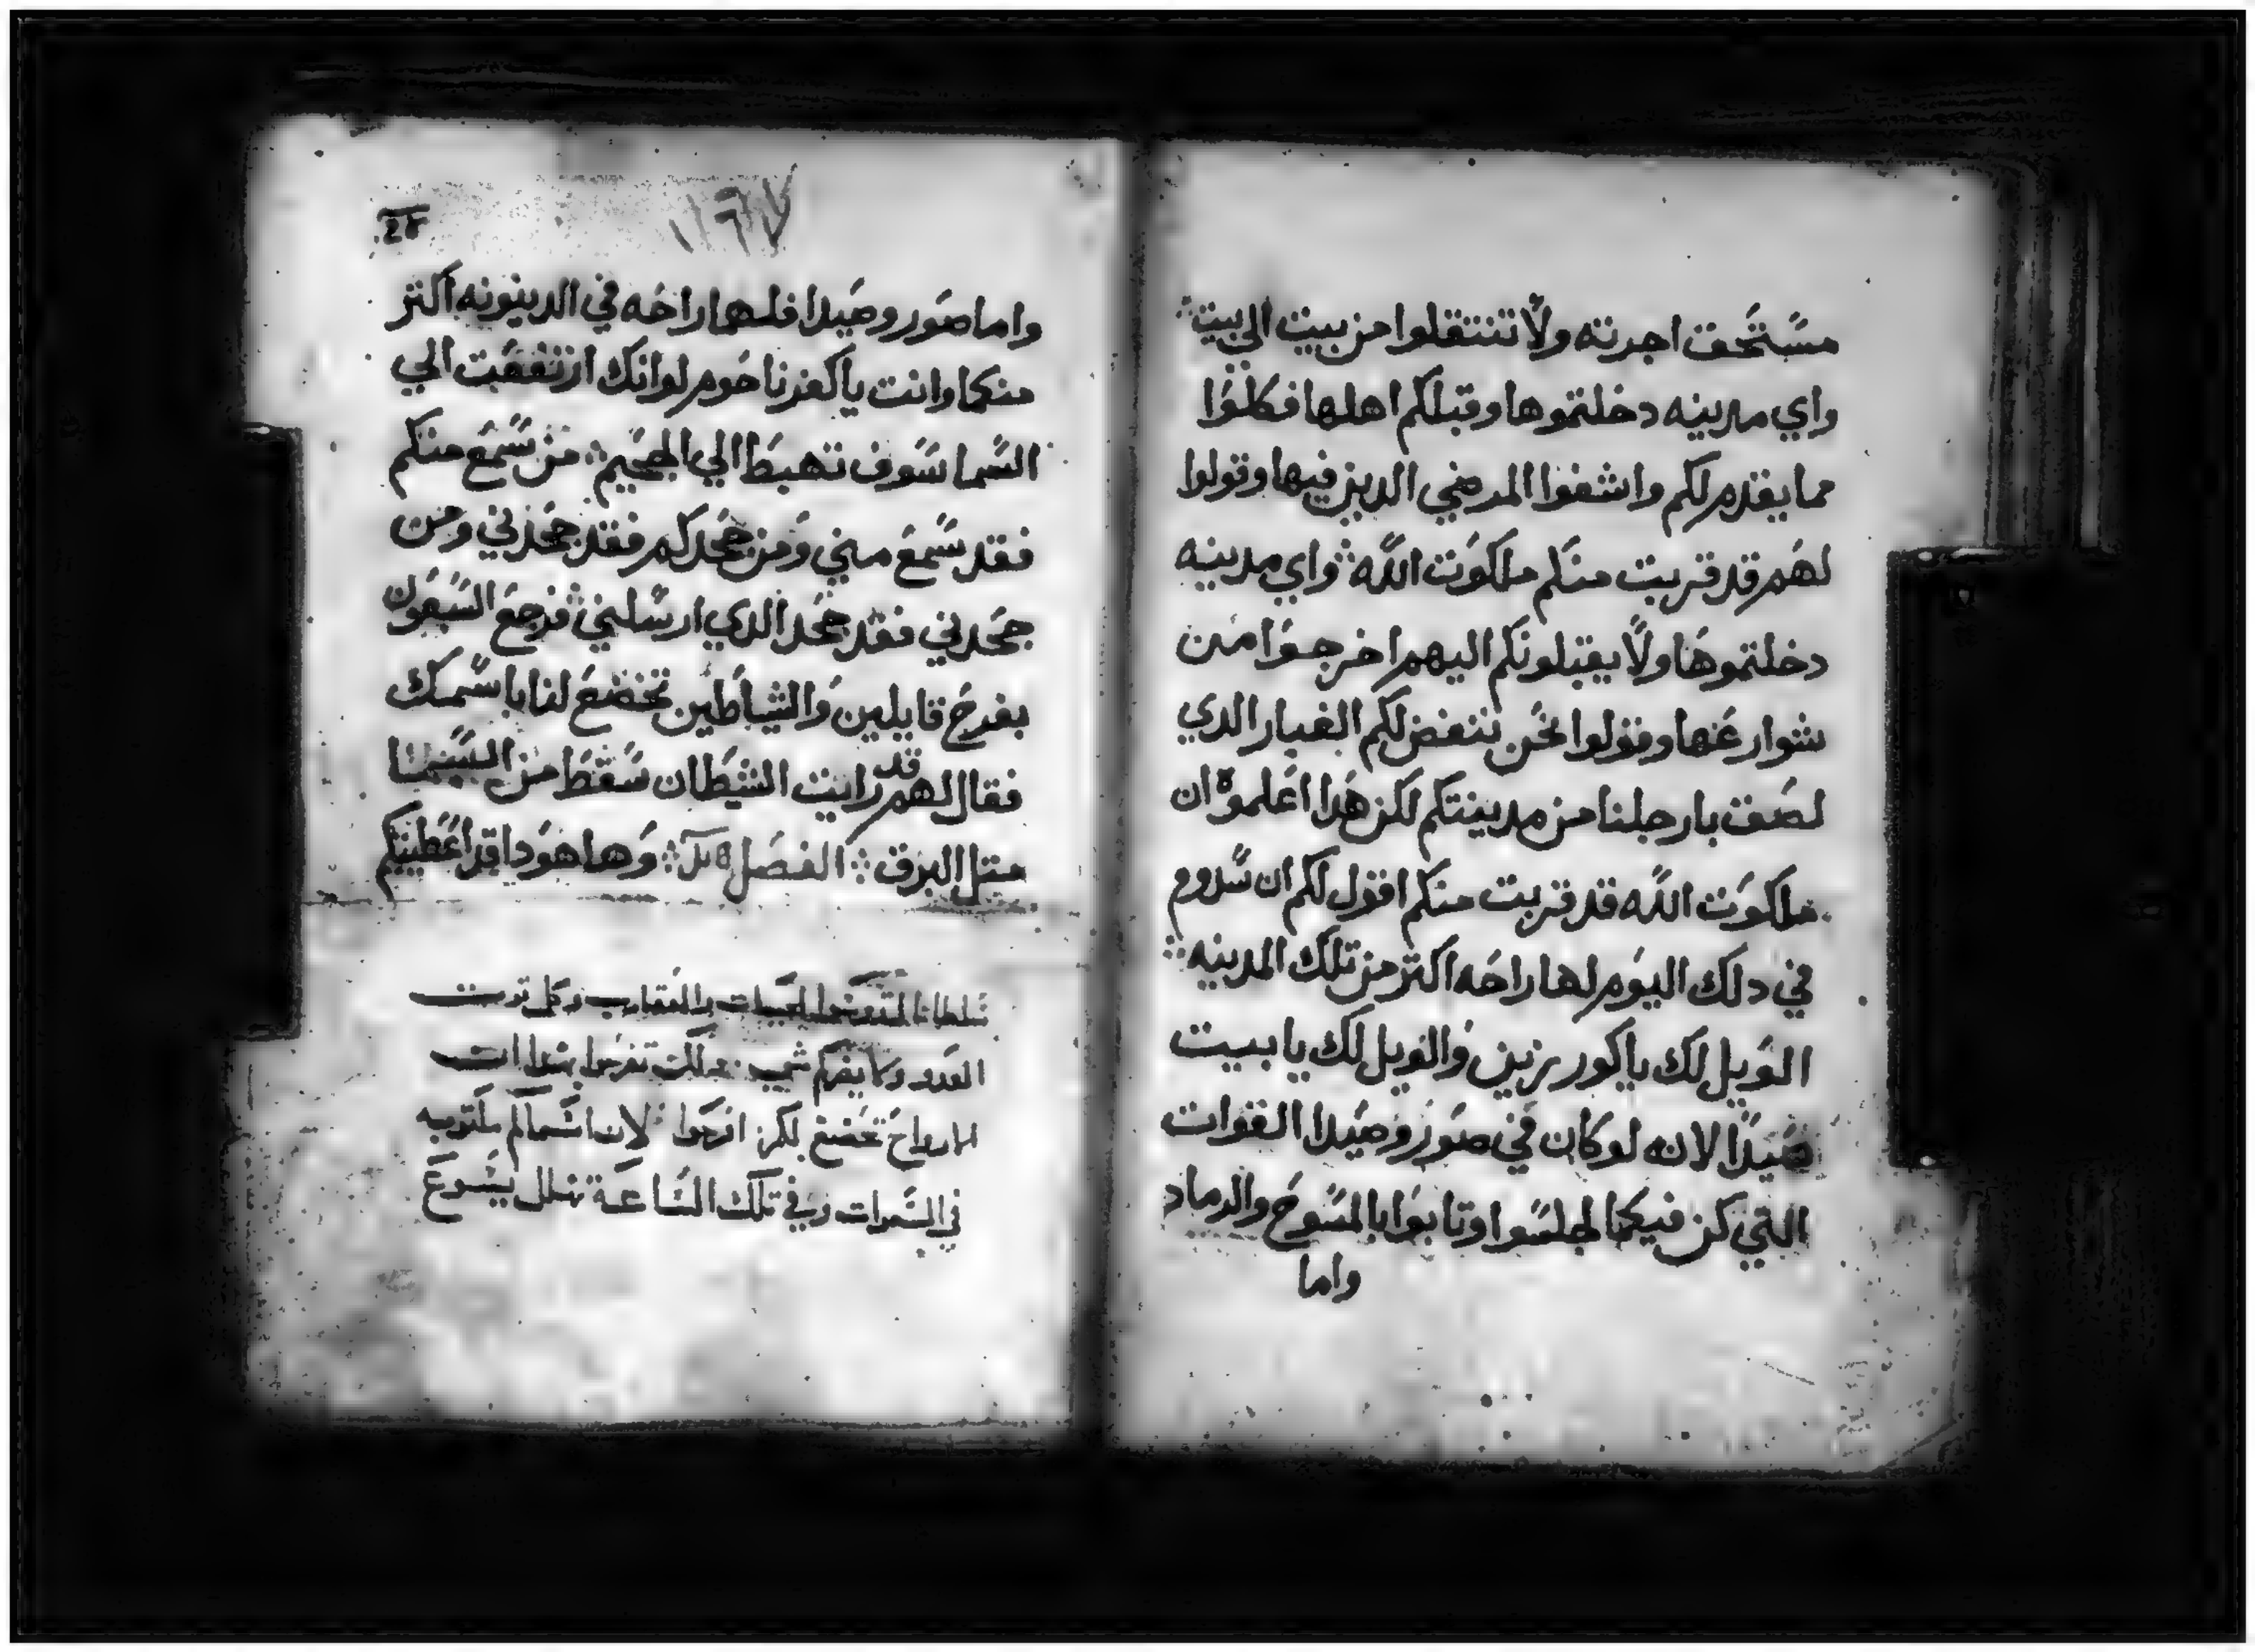 مستحق اجرته ولا تنتقلوا من بيت الي بيت
واي مدينه دخلتموها وقبلكم اهلها فكلوا
مما يقدم لكم واشفوا المرضي الدين فيها وقولوا
لهم قد قربت منكم ملكوت الله واي مدينه
دخلتموها ولا يقبلونكم اليهم اخرجوا من
شوارعها وقولوا نحن ننفض لكم الغبار الدي
لصق بارجلنا من مدينتكم لكن هدا اعلموه ان
ملكوت الله قد قربت منكم اقول لكم ان سدوم
في دلك اليوم لها راحه اكتر من تلك المدينه
الويل لك ياكورزين والويل لك يا بيت
صيدا لانه لو كان في صور وصيدا القوات
التي كن فيكما لجلسوا وتابوا بالمسوح والرماد
واما
١٦٧
واما صور وصيدا فلهما راحه في الدينونه اكتر
منكما وانت ياكفرناحوم لو انك ارتفعت الي
السما سوف تهبط الي الجحيم من سمع منكم
فقد سمع مني ومن جحدكم فقد جحدني ومن
جحدني فقد جحد الدي ارسلني فرجع السبعون
بفرح قايلين والشياطين تخضع لنا باسمك
فقال لهم قد رايت الشيطان سقط من السما
متل البرق الفصل وها هودا قد اعطيتكم
سلطانا لتدوسوا الحيات والعقارب وكل قوت
العدو ولا يضركم شي لكن تفرحوا بهدا ان
الارواح تخضع لكن افرحوا لان اسماكم مكتوبه
في السموات وفي تلك الساعة تهلل يسوع